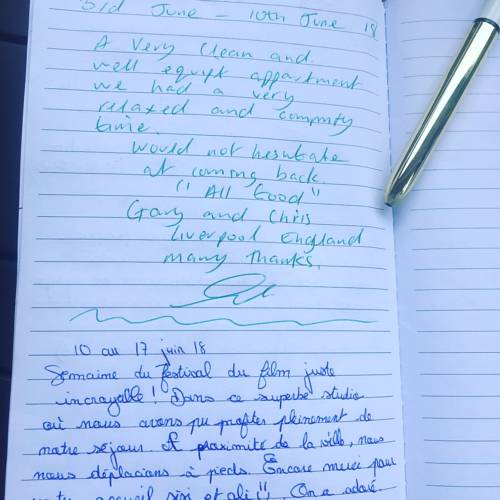 3rd June - 10th June 18
A Very Clean and
well equipt appartment
we had a very
relaxed and
time.
Would not hesitate
at coming back.
("All Good")
Gary and Chris
Liverpool England
Many Thanks.
10 au 17 juin 18
Semaine du festival du film juste
incroyable! Dans ce superbe studio
où nous avons pu profiter pleinement de
notre séjour. A proximité de la ville, nous
nous déplacions à pieds. Encore merci pour
accueil sisi et ali ! On a adoré.